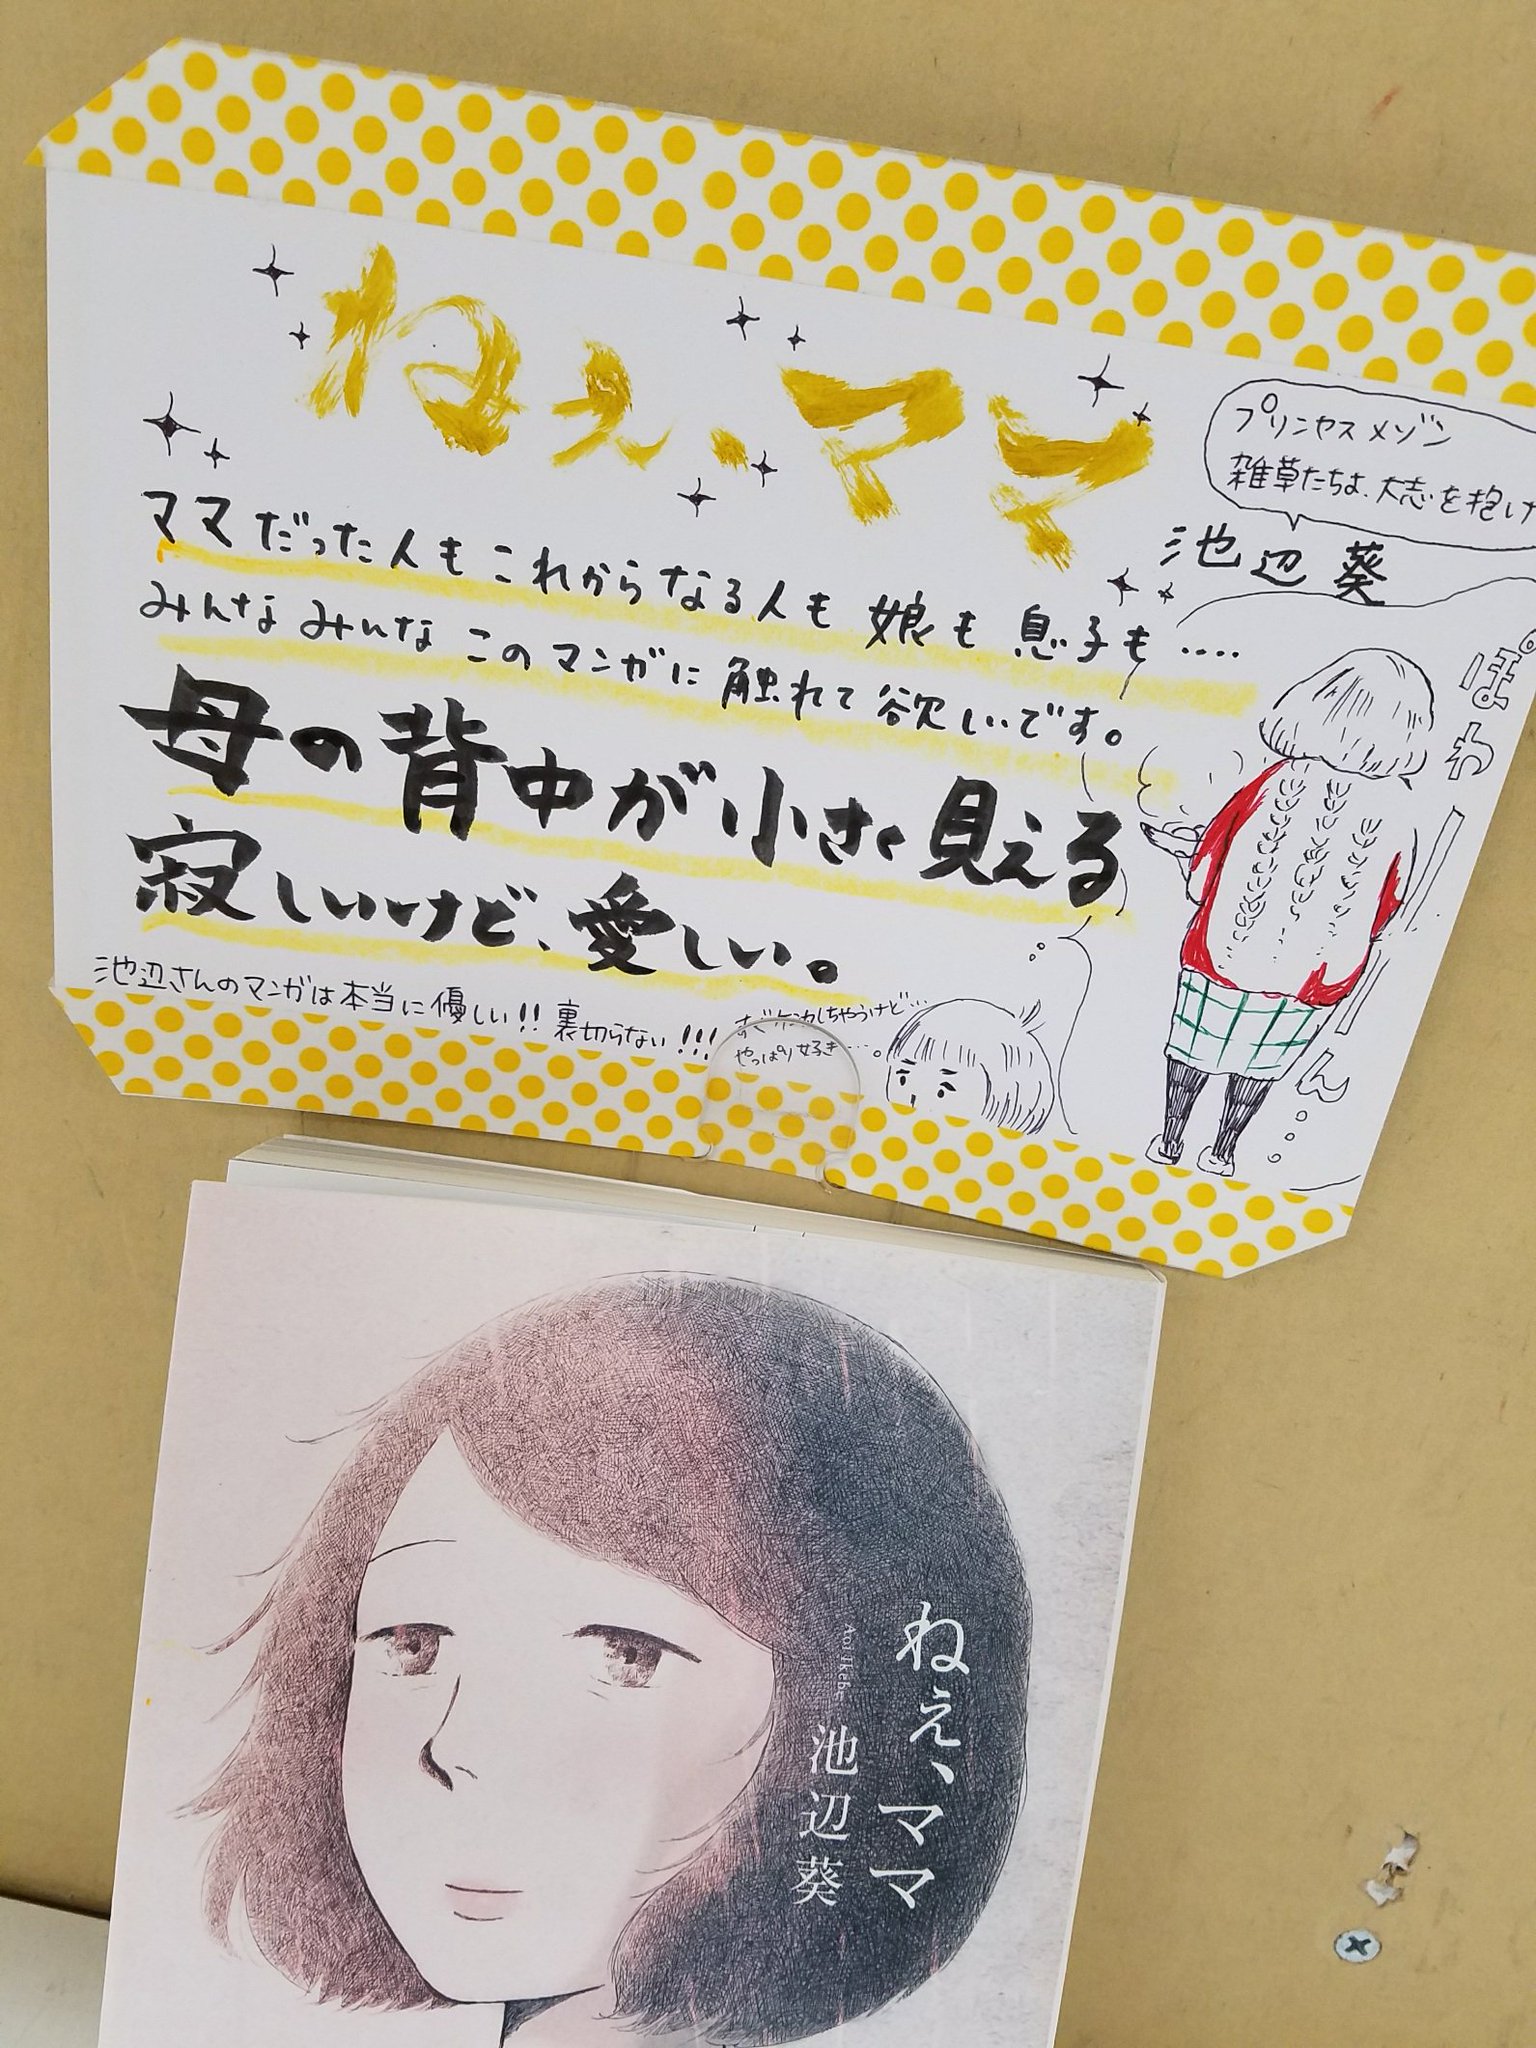 ねぇ、ママ
プリンセスメゾン
雑草たちよ、大志を抱け
池辺葵
ママだった人もこれからなる人も 娘も 息子も ‥‥
みんなみんなこのマンガに触れて欲しいです。
母の背中が小さく見える
寂しいけど、愛しい。
池辺さんのマンガは本当に優しい!! 裏切らない!!!
すぐケンカしちゃうけど…
やっぱり好き…。
ぽわーん
ねぇ、ママ
Aoi Ikebe
池辺葵